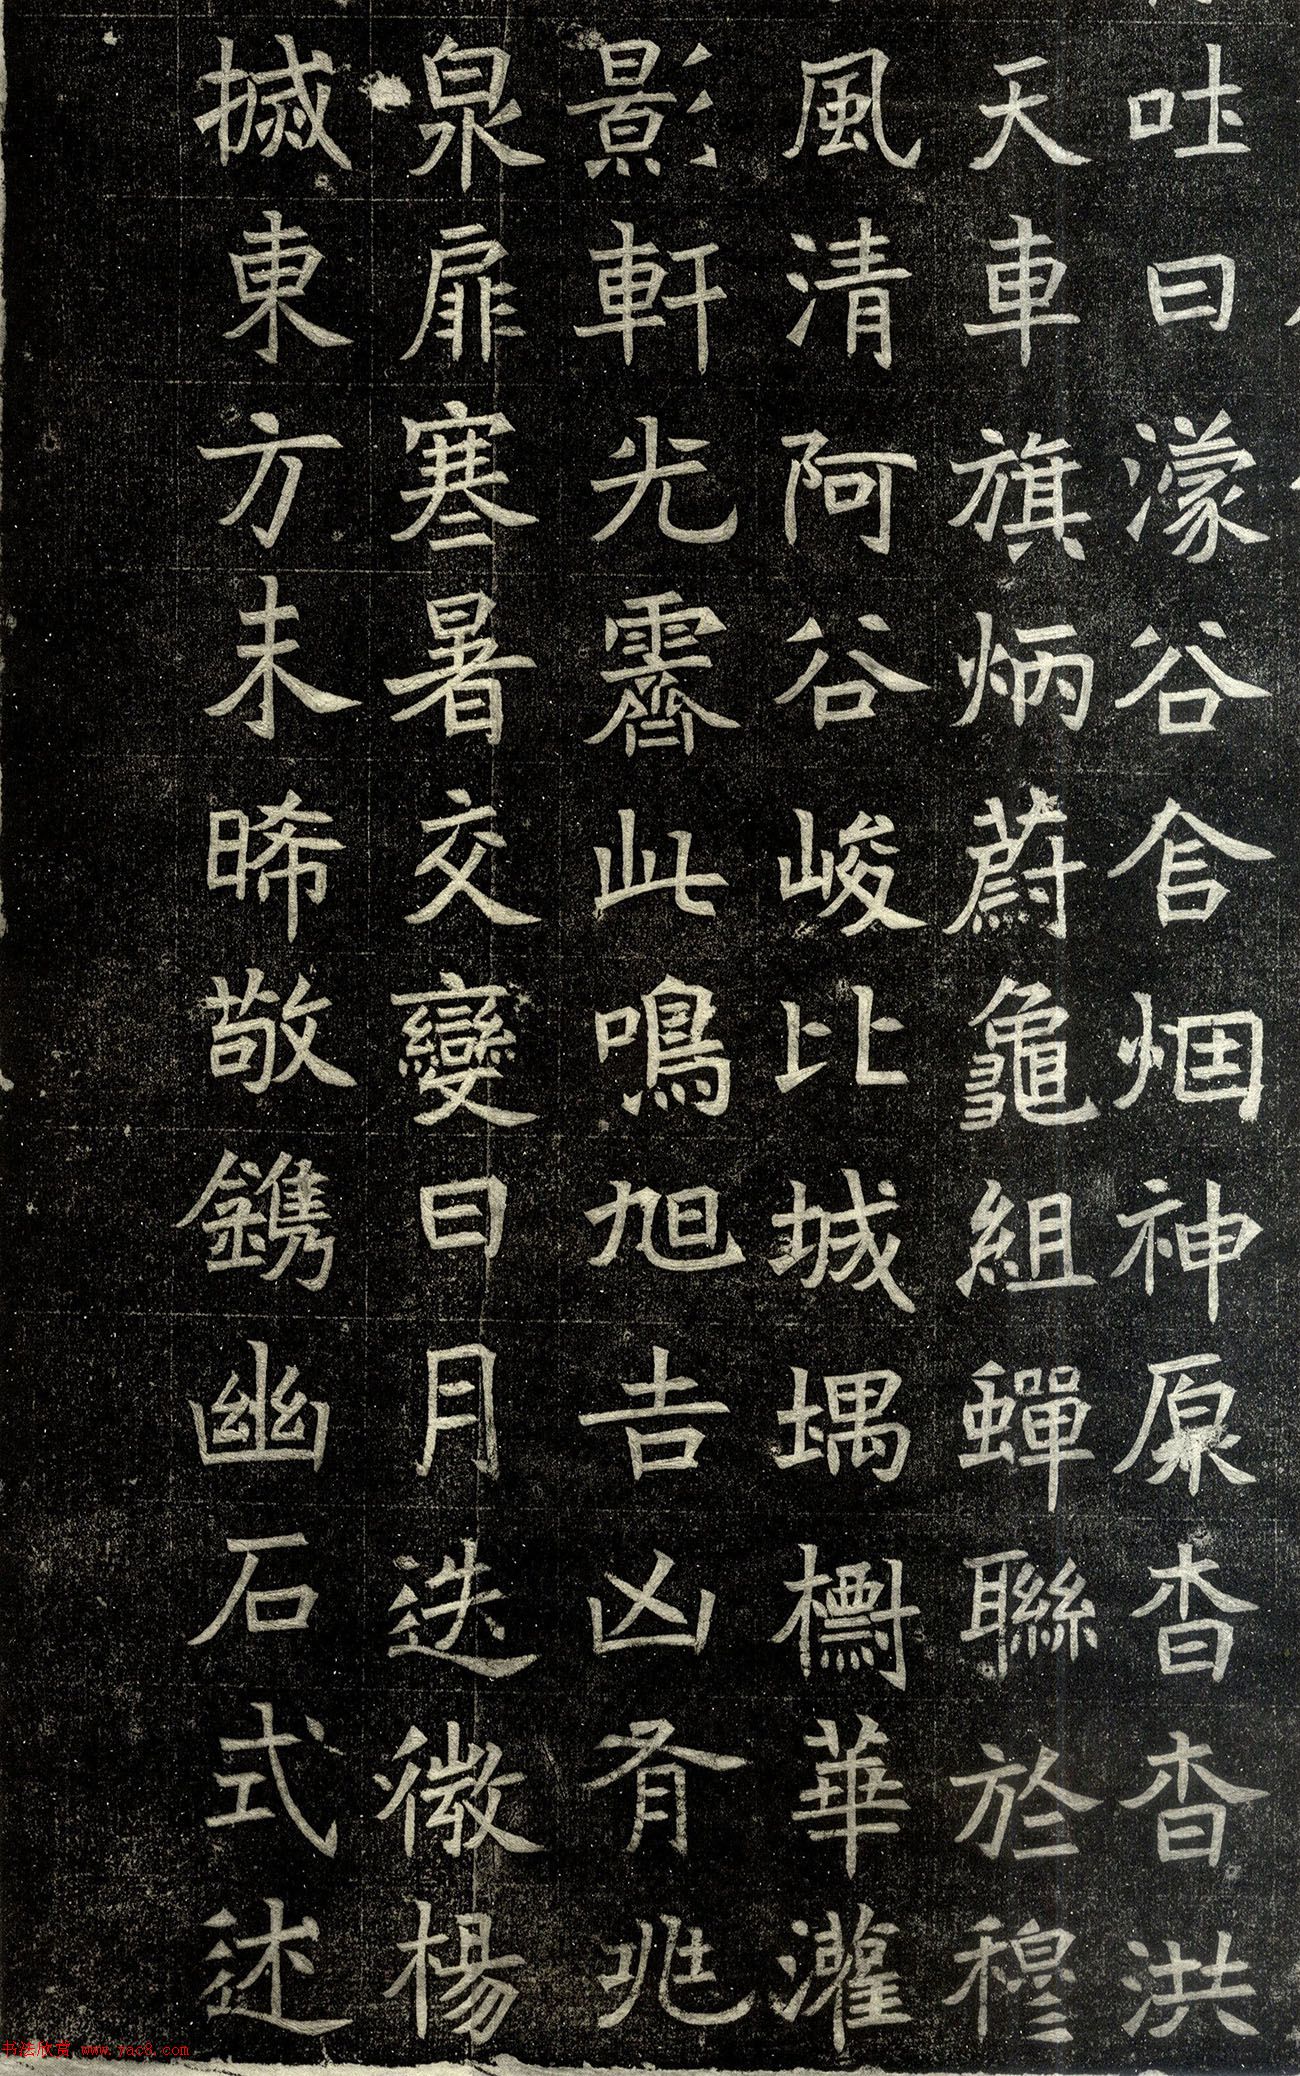 吐曰濛谷含烟神原杳杳洪
天車旗炳蔚龜組蟬聯於穆
風清阿谷峻比城堣櫥華灌
影軒光霽此鳴旭吉凶肴兆
泉扉寒暑交變日月迭微楊
搣東方未晞敬鐫幽石式述
书法欣赏 www.yac8.com